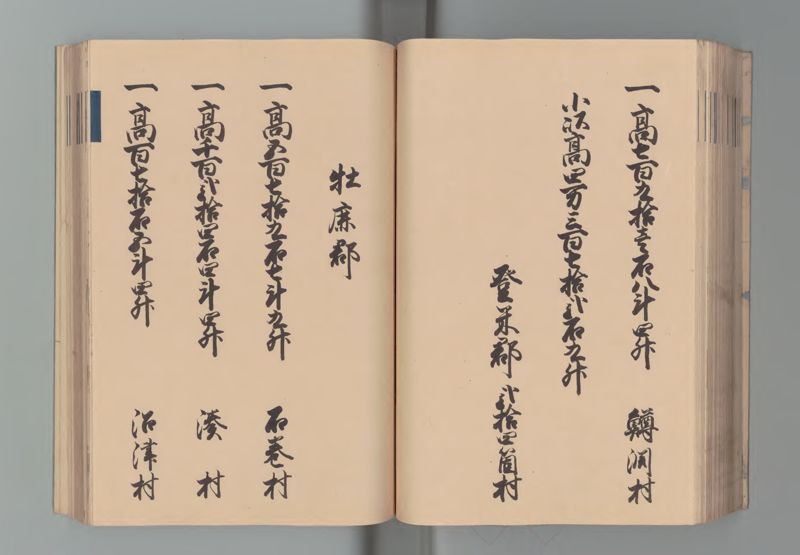 一高七百九拾壱石八斗四升 鱒渕村
小以高四万三百七拾弐石九升
登米郡弐拾四箇村
牡鹿郡
一高五百七拾九石七斗九升 石巻村
一高千百弐拾四石四斗四升 湊村
一高百七拾石五斗四升 沼津村